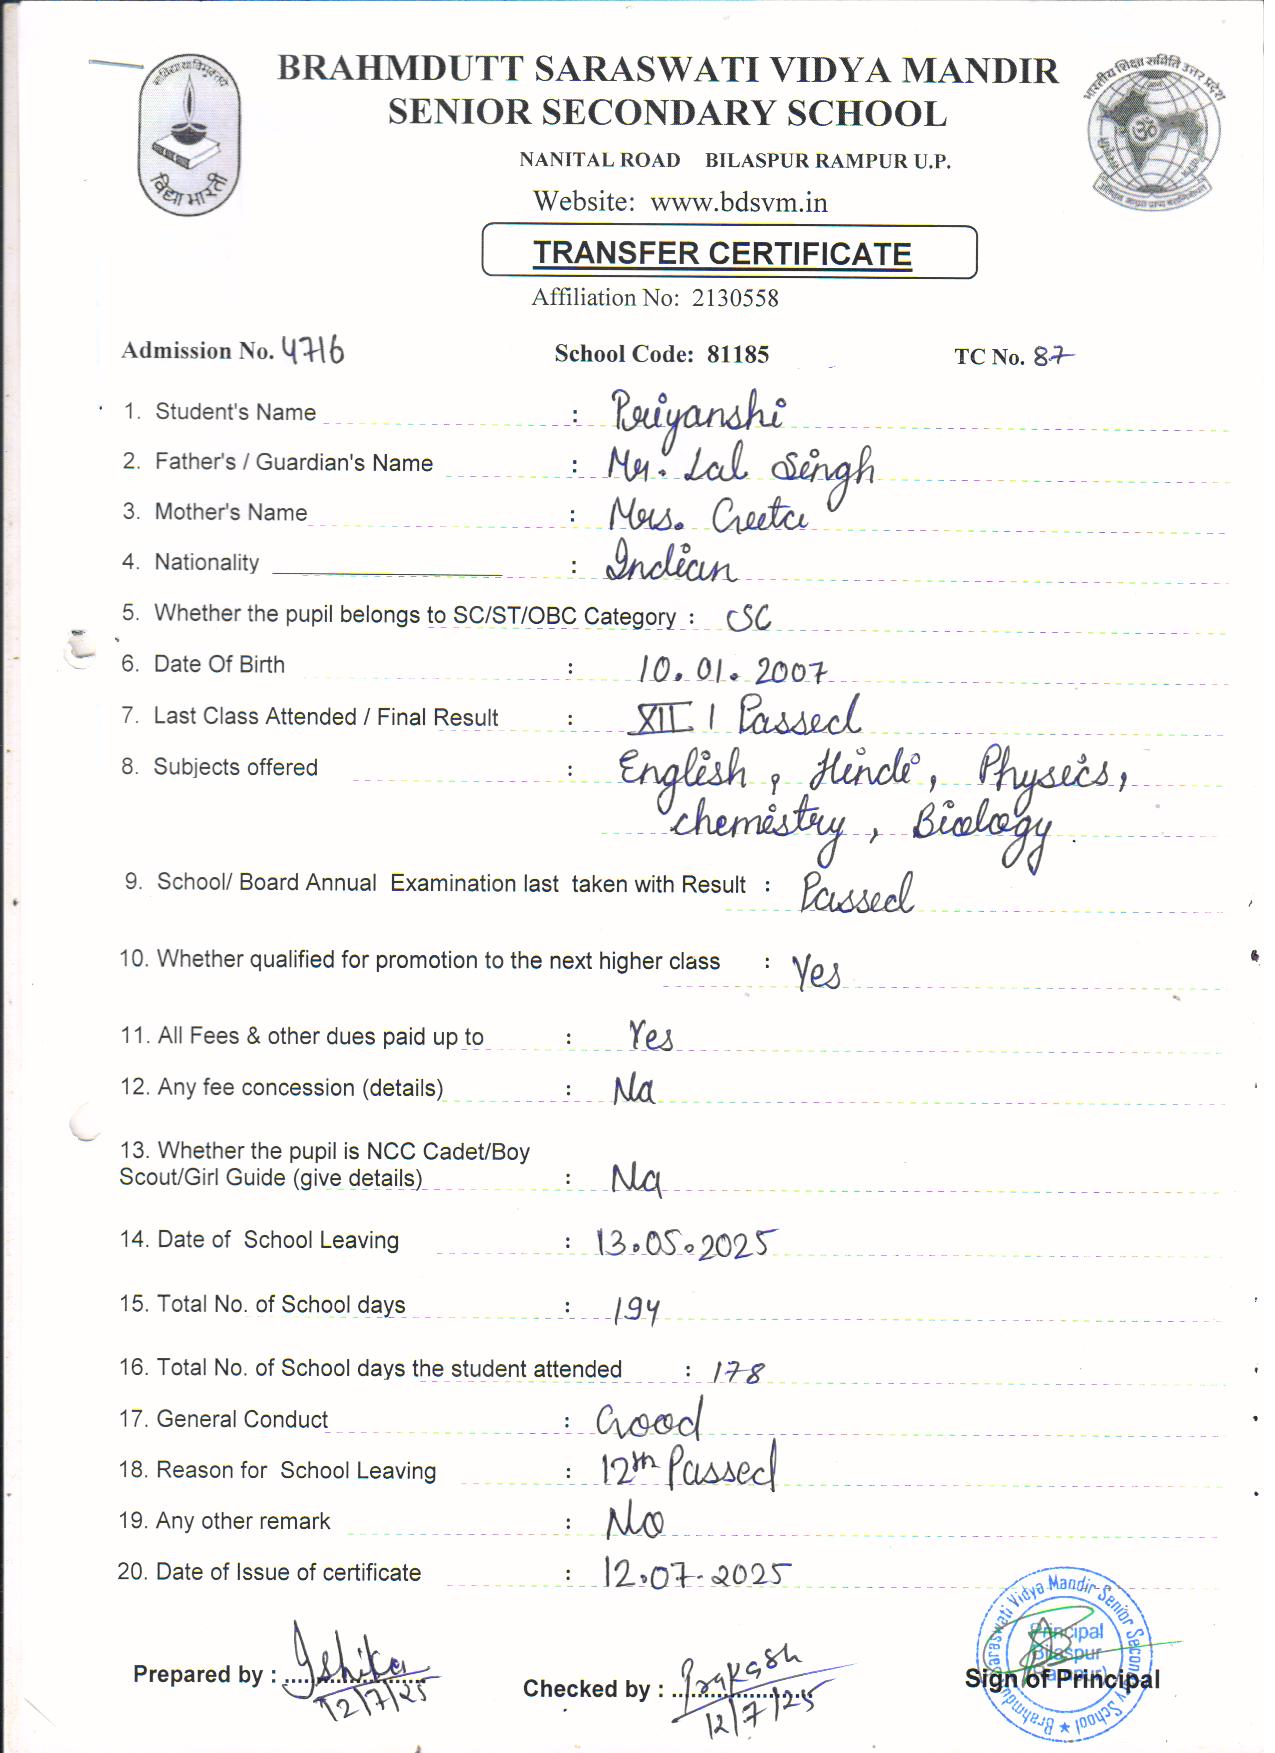 BRAHMDUTT SARASWATI VIDYA MANDIR
SENIOR SECONDARY SCHOOL
NANITAL ROAD BILASPUR RAMPUR U.P.
Website: www.bdsvm.in
विद्या भारती
भारतीय शिक्षा समिति उत्तर प्रदेश
TRANSFER CERTIFICATE
Affiliation No: 2130558
Admission No. 4716 School Code: 81185 TC No. 87
1. Student's Name : Priyanshi
2. Father's / Guardian's Name : Mr. Lal Singh
3. Mother's Name : Mrs. Geeta
4. Nationality : Indian
5. Whether the pupil belongs to SC/ST/OBC Category : SC
6. Date Of Birth : 10.01.2007
7. Last Class Attended / Final Result : XII / Passed
8. Subjects offered : English, Hindi, Physics,
chemistry, Biology.
9. School/ Board Annual Examination last taken with Result : Passed
10. Whether qualified for promotion to the next higher class : Yes
11. All Fees & other dues paid up to : Yes
12. Any fee concession (details) : Na
13. Whether the pupil is NCC Cadet/Boy
Scout/Girl Guide (give details) : Na
14. Date of School Leaving : 13.05.2025
15. Total No. of School days : 194
16. Total No. of School days the student attended : 178
17. General Conduct : Good
18. Reason for School Leaving : 12th Passed
19. Any other remark : No
20. Date of Issue of certificate : 12.07.2025
Prepared by : Ishika
12/7/25
Checked by : Prakash
12/7/25
Brahmdutt Saraswati Vidya Mandir Senior Secondary School
Principal
Bilaspur
(Rampur)
Sign of Principal